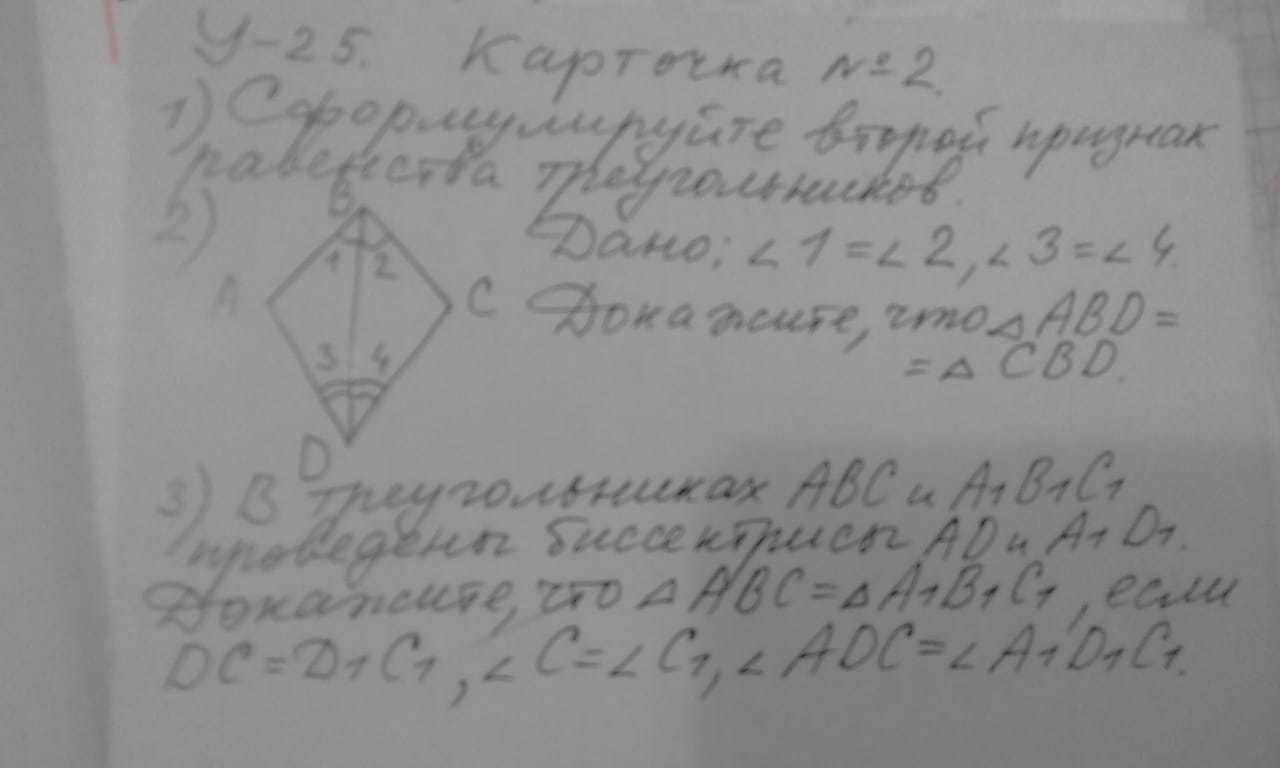 У-25. Карточка №2.
1) Сформулируйте второй признак
равенства треугольников.
2) B
Дано: ∠1=∠2, ∠3=∠4.
1 2
A C
Докажите, что △ABD=
=△CBD.
3 4
D
3) В треугольниках ABC и A1B1C1
проведены биссектрисы AD и A1D1.
Докажите, что △ABC=△A1B1C1, если
DC=D1C1, ∠C=∠C1, ∠ADC=∠A1D1C1.